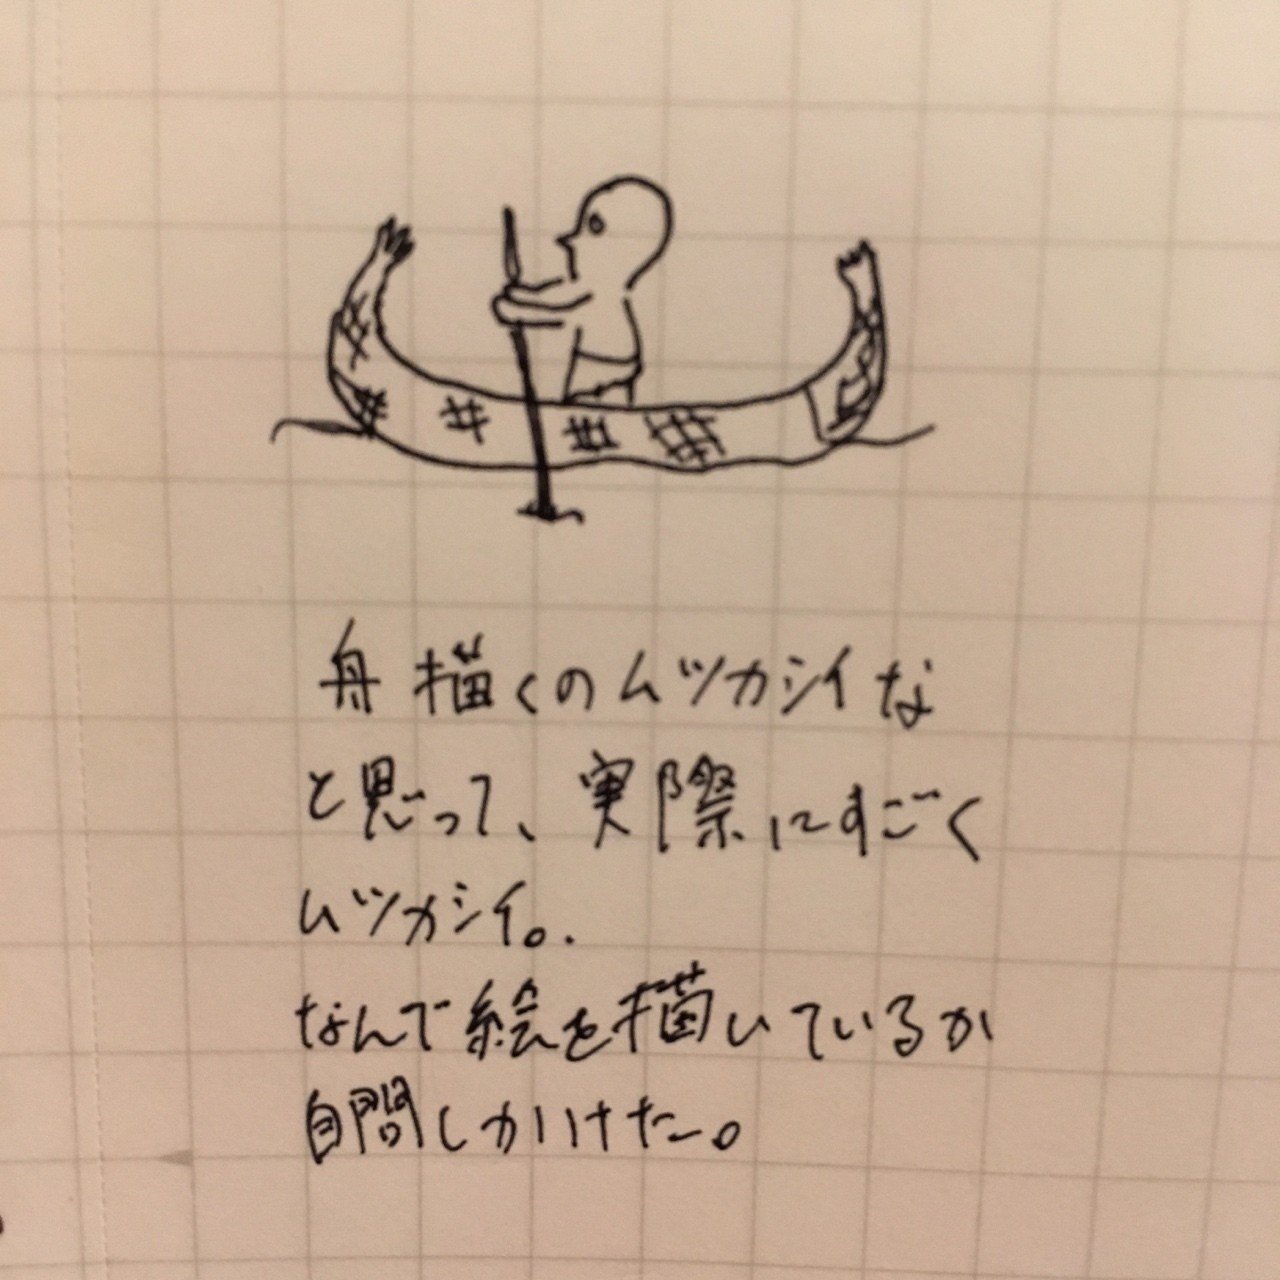 舟描くのムツカシイな
と思って、実際にすごく
ムツカシイ。.
なんで絵を描いているか
自問しかけた。